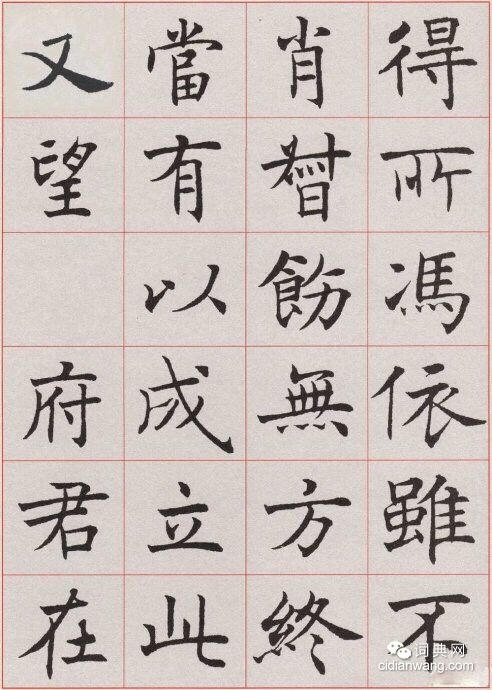 得所馮依雖不
肖督飭無方終
當有以成立此
又望 府君在
词典网
cidianwang.com